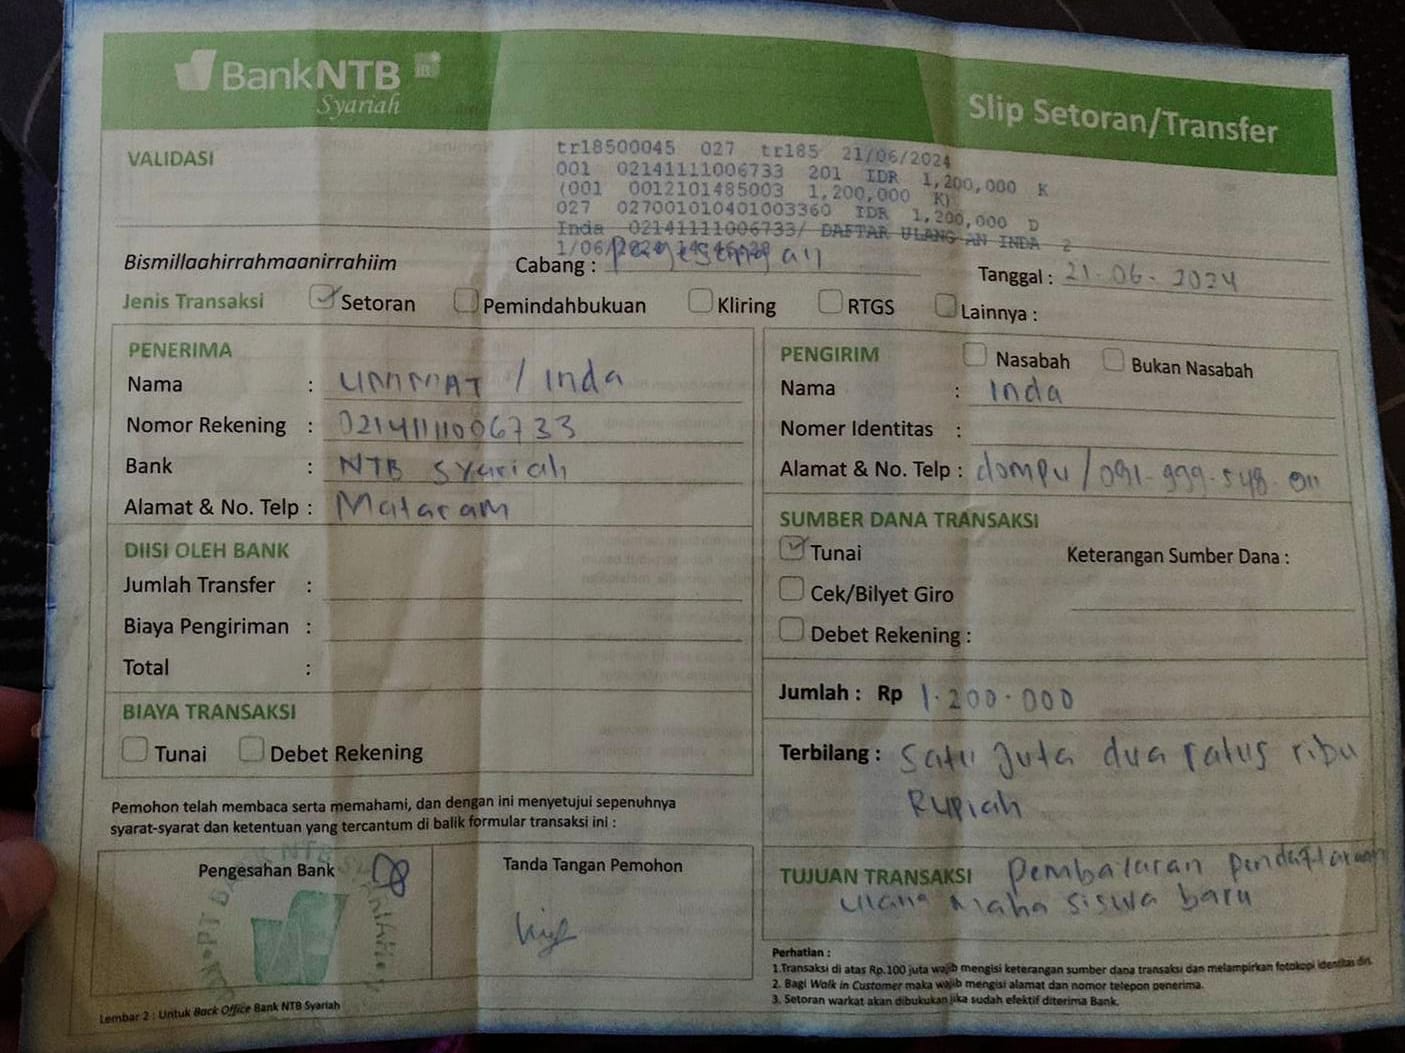 BankNTB
Syariah
Slip Setoran/Transfer
VALIDASI
tr18500045 027 tr185 21/06/2024
001 02141111006733 201 IDR 1,200,000 K
(001 0012101485003 1,200,000 K)
027 027001010401003360 IDR 1,200,000 D
Inda 02141111006733/ DAFTAR ULANG AN INDA 2
1/06/2024
Bismillaahirrahmaanirrahiim
Cabang :
Tanggal : 21-06-2024
Jenis Transaksi Setoran Pemindahbukuan Kliring RTGS Lainnya :
PENERIMA
Nama : UMMAT / Inda
Nomor Rekening : 02141111006733
Bank : NTB Syariah
Alamat & No. Telp : Mataram
DIISI OLEH BANK
Jumlah Transfer :
Biaya Pengiriman :
Total :
BIAYA TRANSAKSI
Tunai Debet Rekening
PENGIRIM Nasabah Bukan Nasabah
Nama : Inda
Nomer Identitas :
Alamat & No. Telp : dompu /
SUMBER DANA TRANSAKSI
Tunai Keterangan Sumber Dana :
Cek/Bilyet Giro
Debet Rekening :
Jumlah : Rp 1.200.000
Terbilang : Satu Juta dua ratus ribu
Rupiah
TUJUAN TRANSAKSI Pembaiaran pendaftaran
ulang maha siswa baru
Pemohon telah membaca serta memahami, dan dengan ini menyetujui sepenuhnya
syarat-syarat dan ketentuan yang tercantum di balik formular transaksi ini :
Pengesahan Bank
Tanda Tangan Pemohon
Lembar 2 : Untuk Back Office Bank NTB Syariah
Perhatian :
1.Transaksi di atas Rp.100 juta wajib mengisi keterangan sumber dana transaksi dan melampirkan fotokopi identitas diri.
2. Bagi Walk in Customer maka wajib mengisi alamat dan nomor telepon penerima.
3. Setoran warkat akan dibukukan jika sudah efektif diterima Bank.